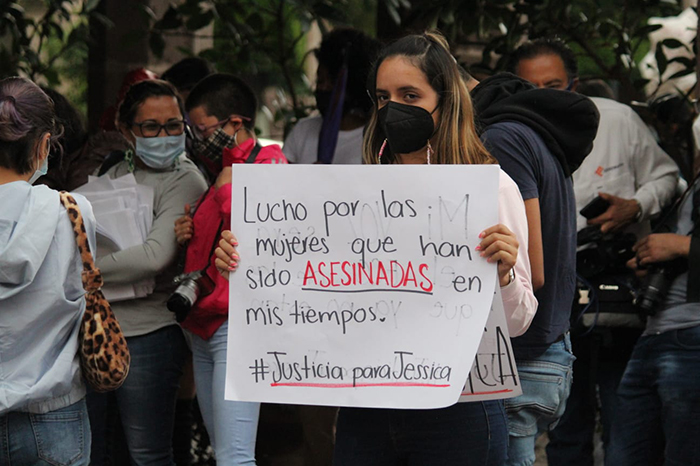 Lucho por las
mujeres que han
sido ASESINADAS en
mis tiempos.
#Justicia para Jessica